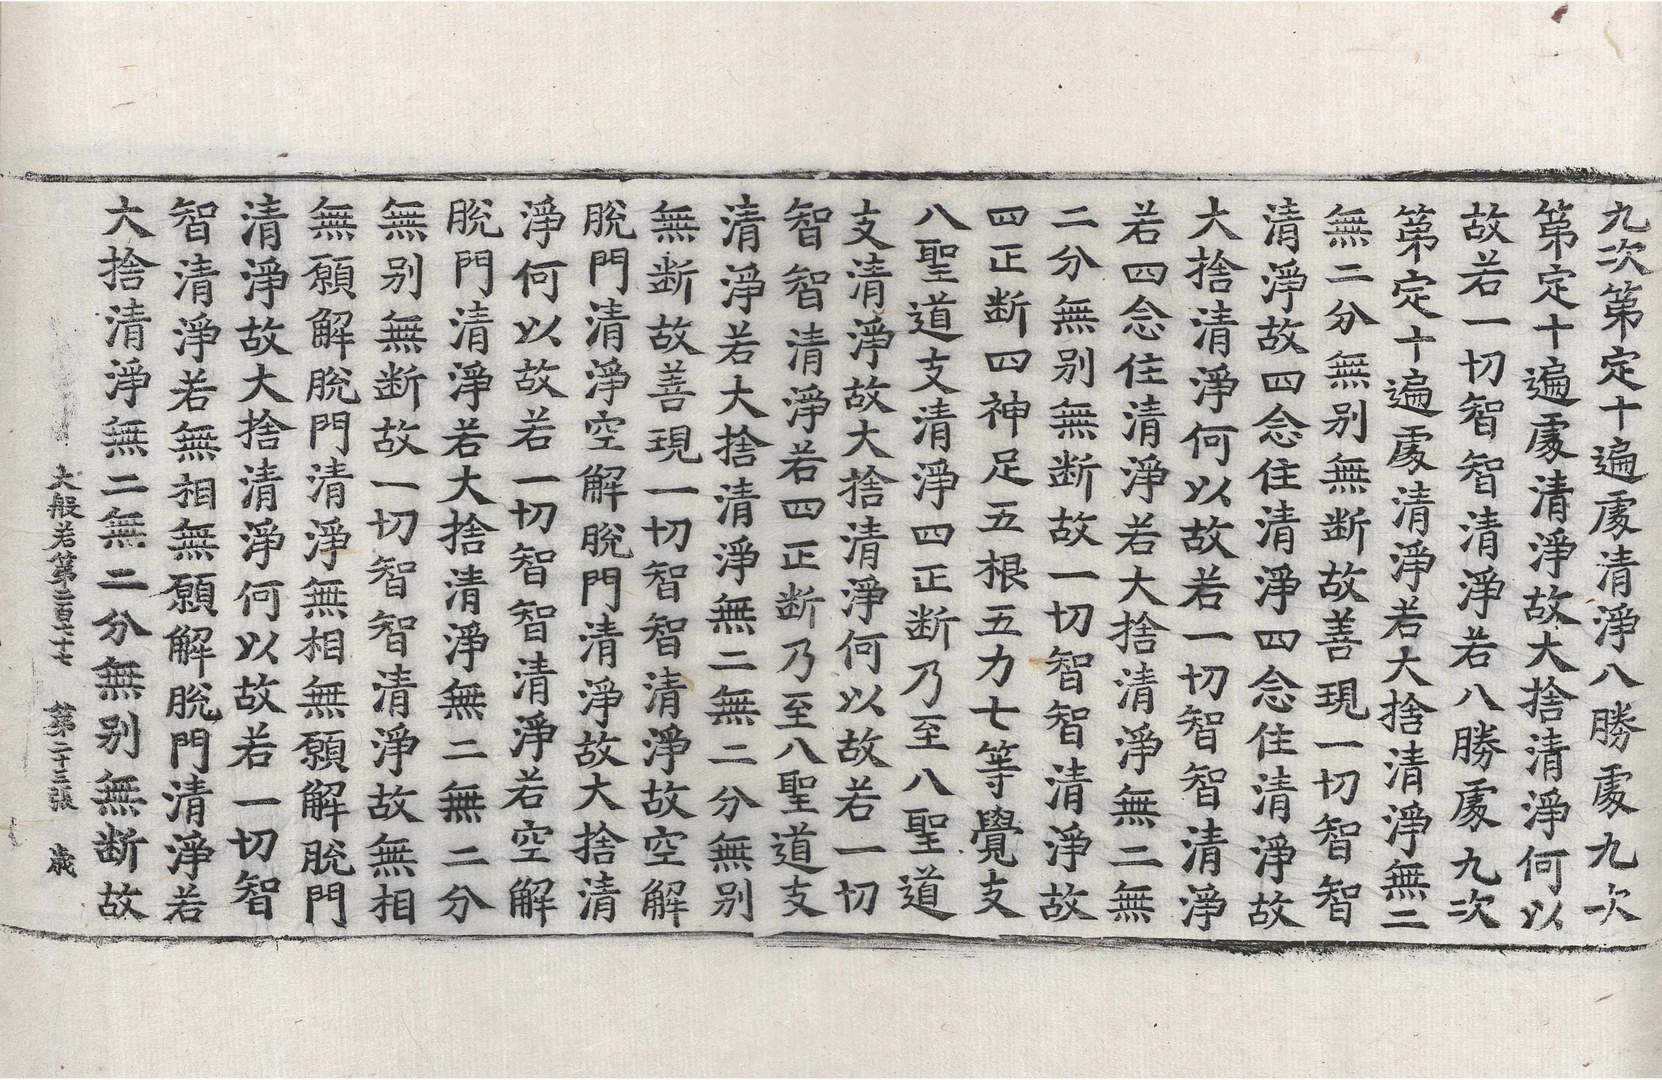 九次第定十遍處清淨八勝處九次
第定十遍處清淨故大捨清淨何以
故若一切智智清淨若八勝處九次
第定十遍處清淨若大捨清淨無二
無二分無別無断故善現一切智智
清淨故四念住清淨四念住清淨故
大捨清淨何以故若一切智智清淨
若四念住清淨若大捨清淨無二無
二分無別無断故一切智智清淨故
四正断四神足五根五力七等覺支
八聖道支清淨四正断乃至八聖道
支清淨故大捨清淨何以故若一切
智智清淨若四正断乃至八聖道支
清淨若大捨清淨無二無二分無別
無断故善現一切智智清淨故空解
脫門清淨空解脫門清淨故大捨清
淨何以故若一切智智清淨若空解
脫門清淨若大捨清淨無二無二分
無別無断故一切智智清淨故無相
無願解脫門清淨無相無願解脫門
清淨故大捨清淨何以故若一切智
智清淨若無相無願解脫門清淨若
大捨清淨無二無二分無別無断故
大般若第二百六十七 第二十三張 歲